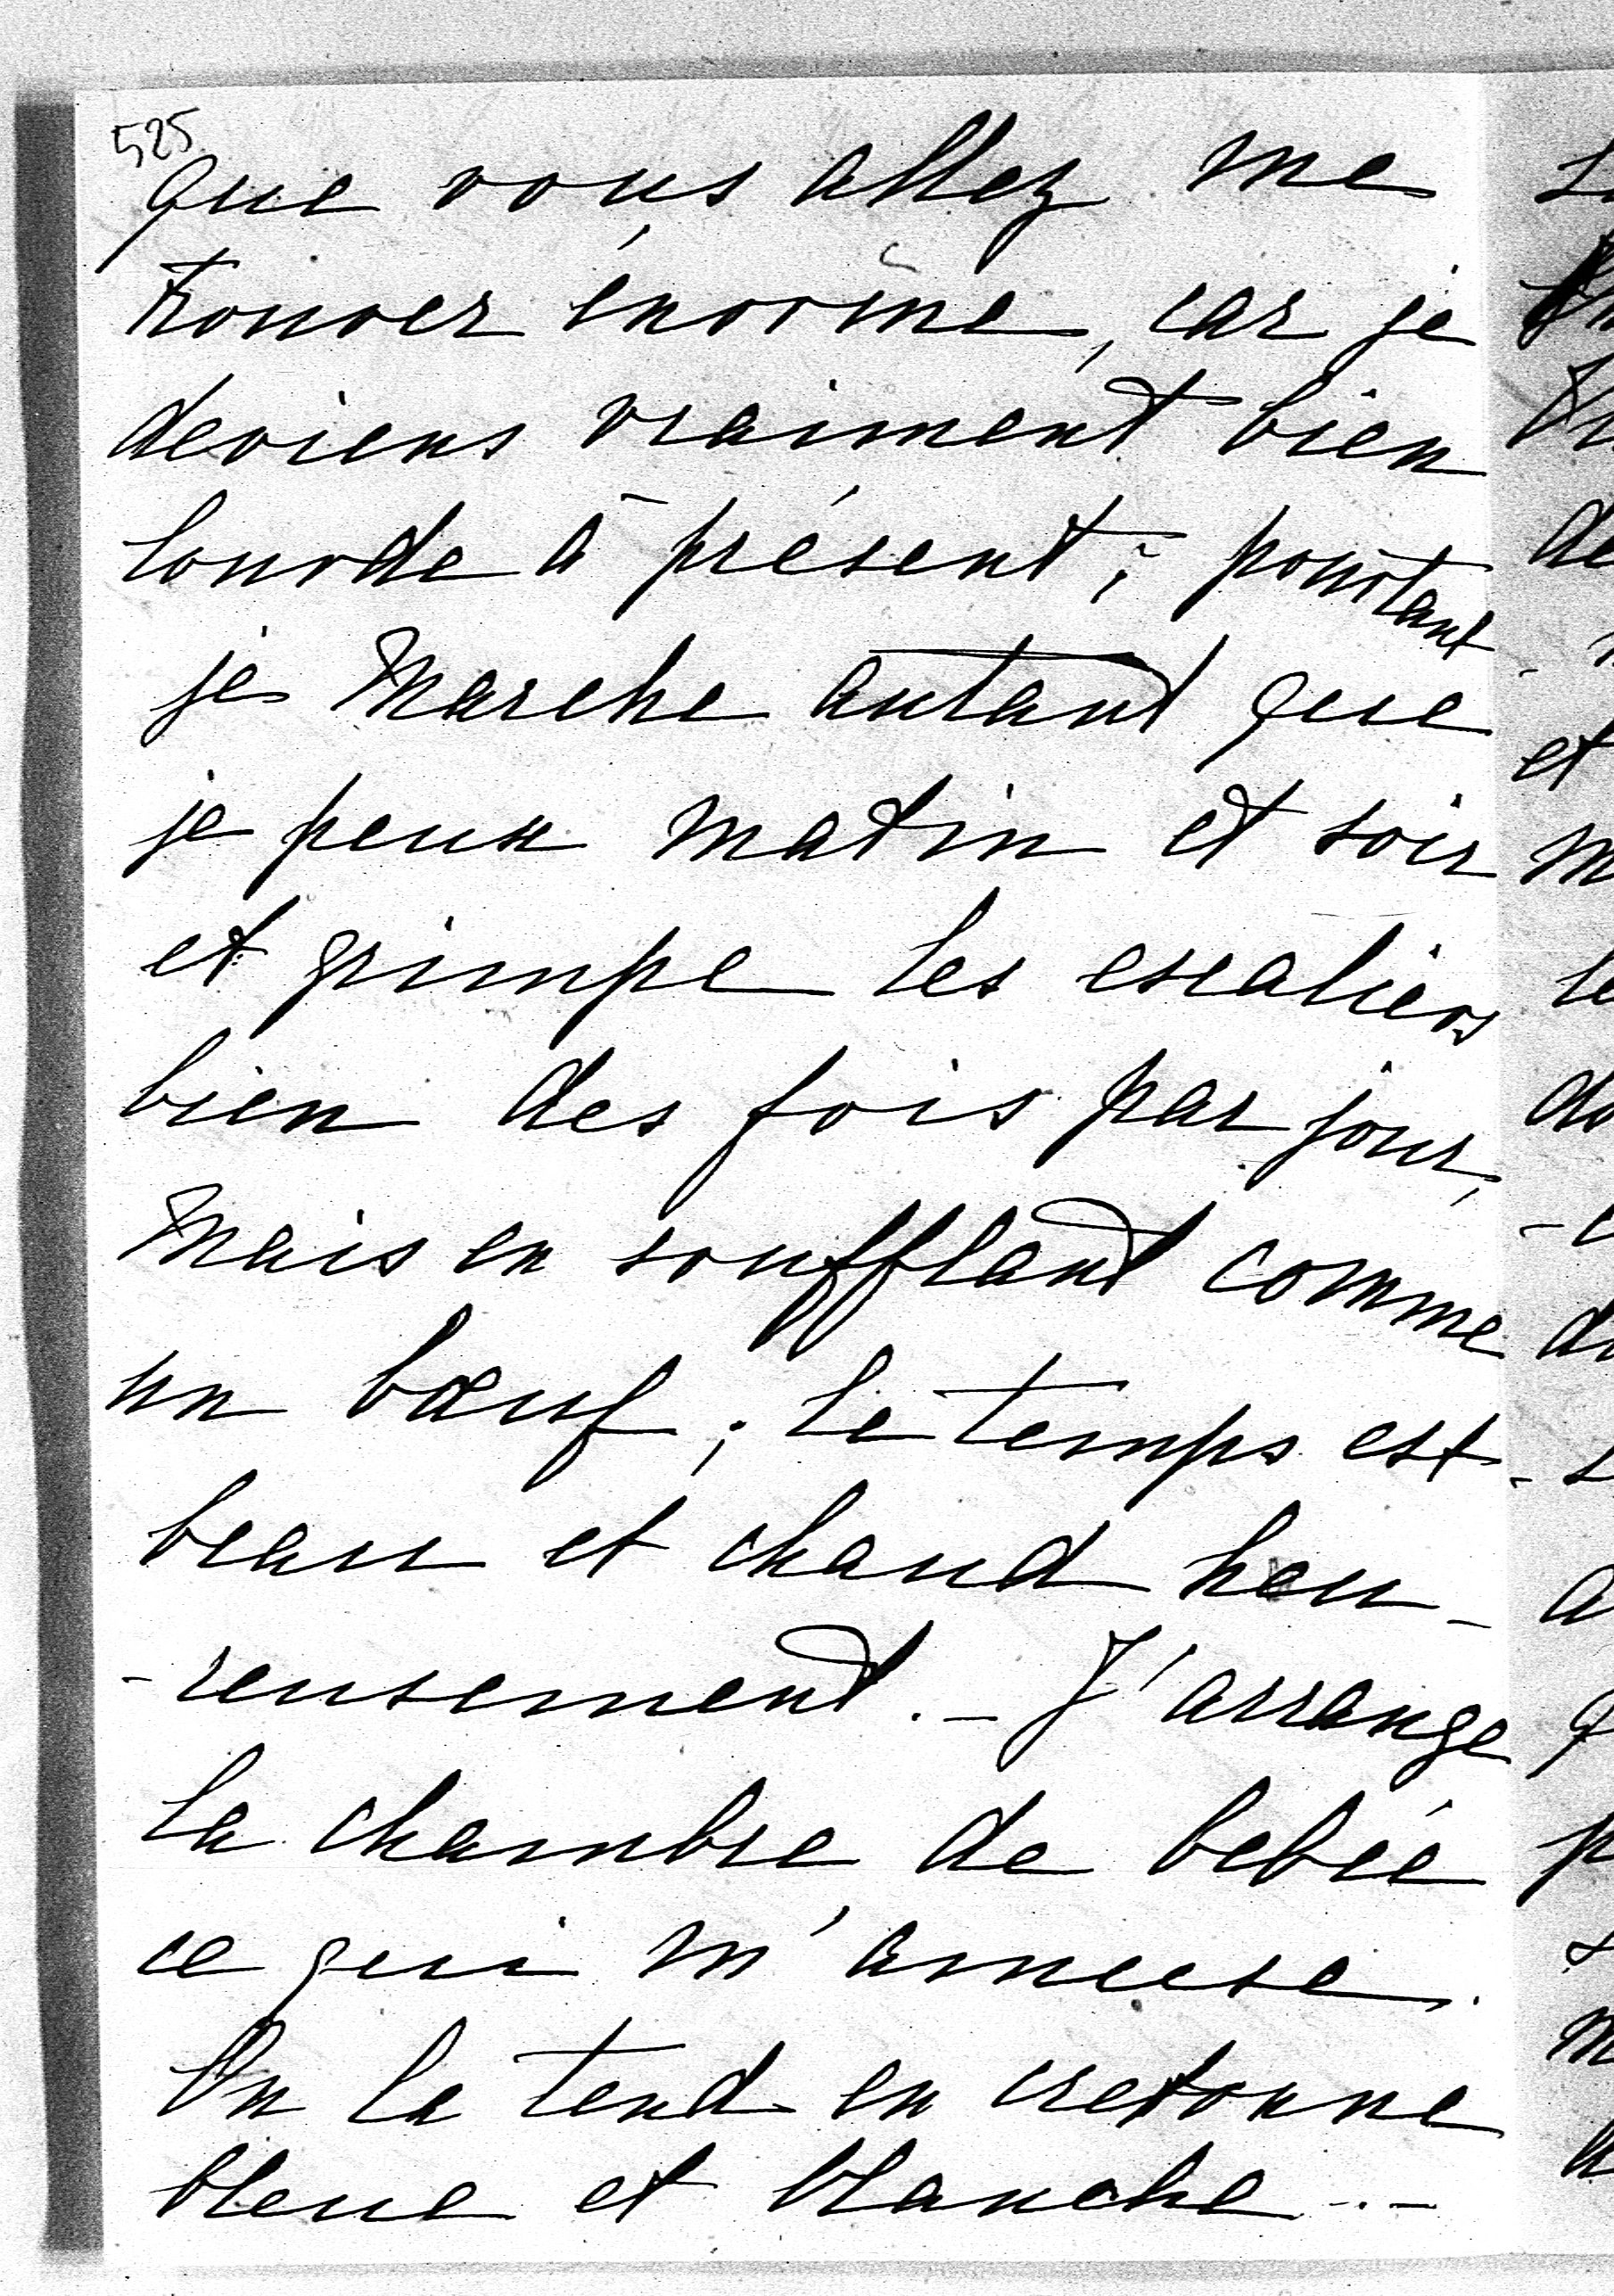 525
que vous allez me
trouver énorme, car je
deviens vraiment bien
lourde à présent; pourtant
je marche autant que
je peux matin et soir
et grimpe les escaliers
bien des fois par jour,
mais en soufflant comme
un bœuf; le temps est
beau et chaud heu-
-reusement. - J'arrange
la chambre de bebée
ce qui m'amuse.
On la tend en cretonne
bleue et blanche.-